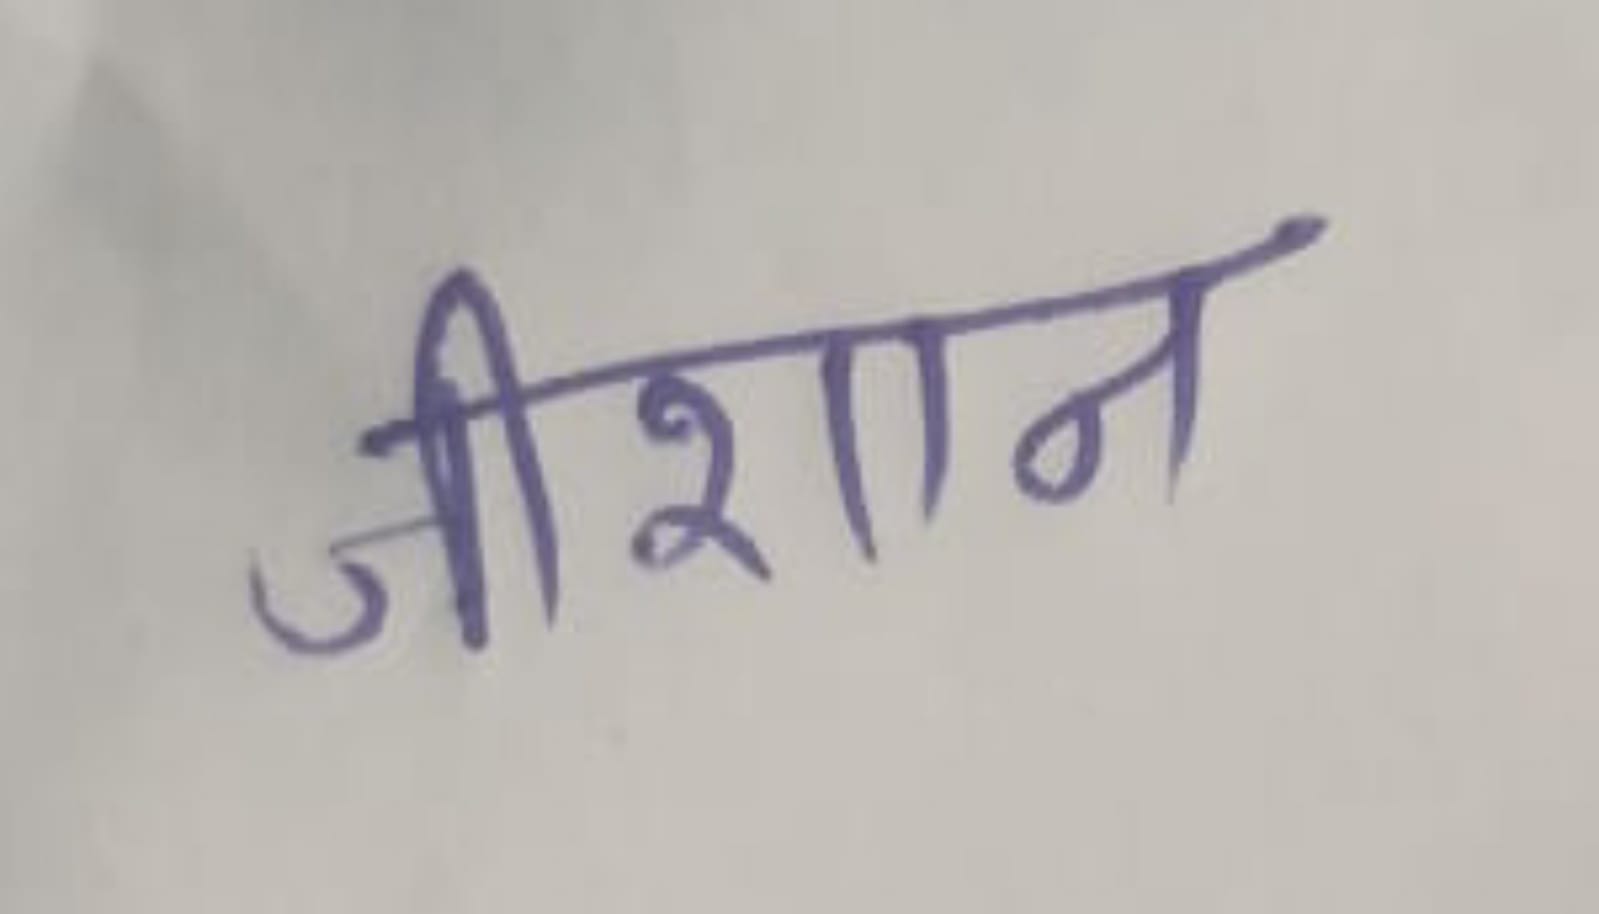 जीशान